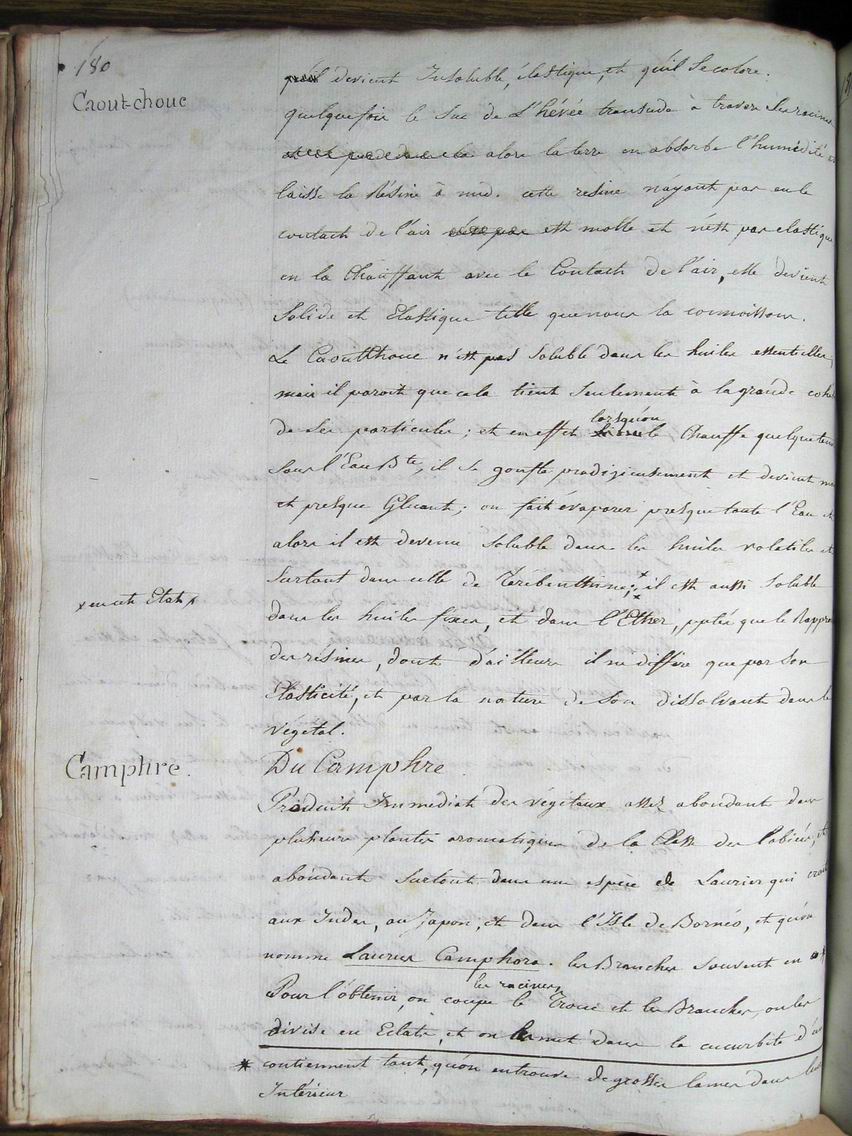 180
Caout-chouc
devient Insoluble, élastique, et qu'il se colore.
quelque fois le suc de L'hévée transude à travers ses racines
alors la terre en absorbe l'humidité et
laisse la Résine à nud. cette resine n'ayant pas eu le
contact de l'air est molle et n'est pas elastique
en la chauffant avec le Contact de l'air, elle devient
Solide et Elastique telle que nous la connoissons.
Le Caoutchouc n'est pas Soluble dans les huiles essentielles,
mais il paroit que cela tient Seulement à la grande
de ses particules ; et en effet lorsqu'on le Chauffe quelque tems
sous l'Eau Bte, il se gonfle prodigieusement et devient
et presque Gluant ; on fait évaporer presque toute l'Eau et
alors il est devenu Soluble dans les huiles volatiles et
Surtout dans celle de Terebenthine ; x il est aussi Soluble
x en cet Etat
dans les huiles fixes, et dans l'Ether, pptée que le
des résines, dont d'ailleurs il ne differe que par son
Elasticité, et par la nature de son dissolvant dans le
végetal.
Camphre.
Du Camphre.
Produit Immediat des végetaux assez abondant dans
plusieurs plantes aromatiques de la Classe des labiées, et
abondant Surtout dans une espèce de Laurier qui croit
aux Indes, au Japon, et dans l'Isle de Bornéo, et qu'on
nomme Laurus Camphora. les Branches Souvent en *
Pour l'obtenir, on coupe les racines, le Tronc et les Branches, on les
divise en Eclats, et on les met dans la cucurbite d'un
* contiennent tant, qu'on en trouve de grosses lames dans leur
Intérieur